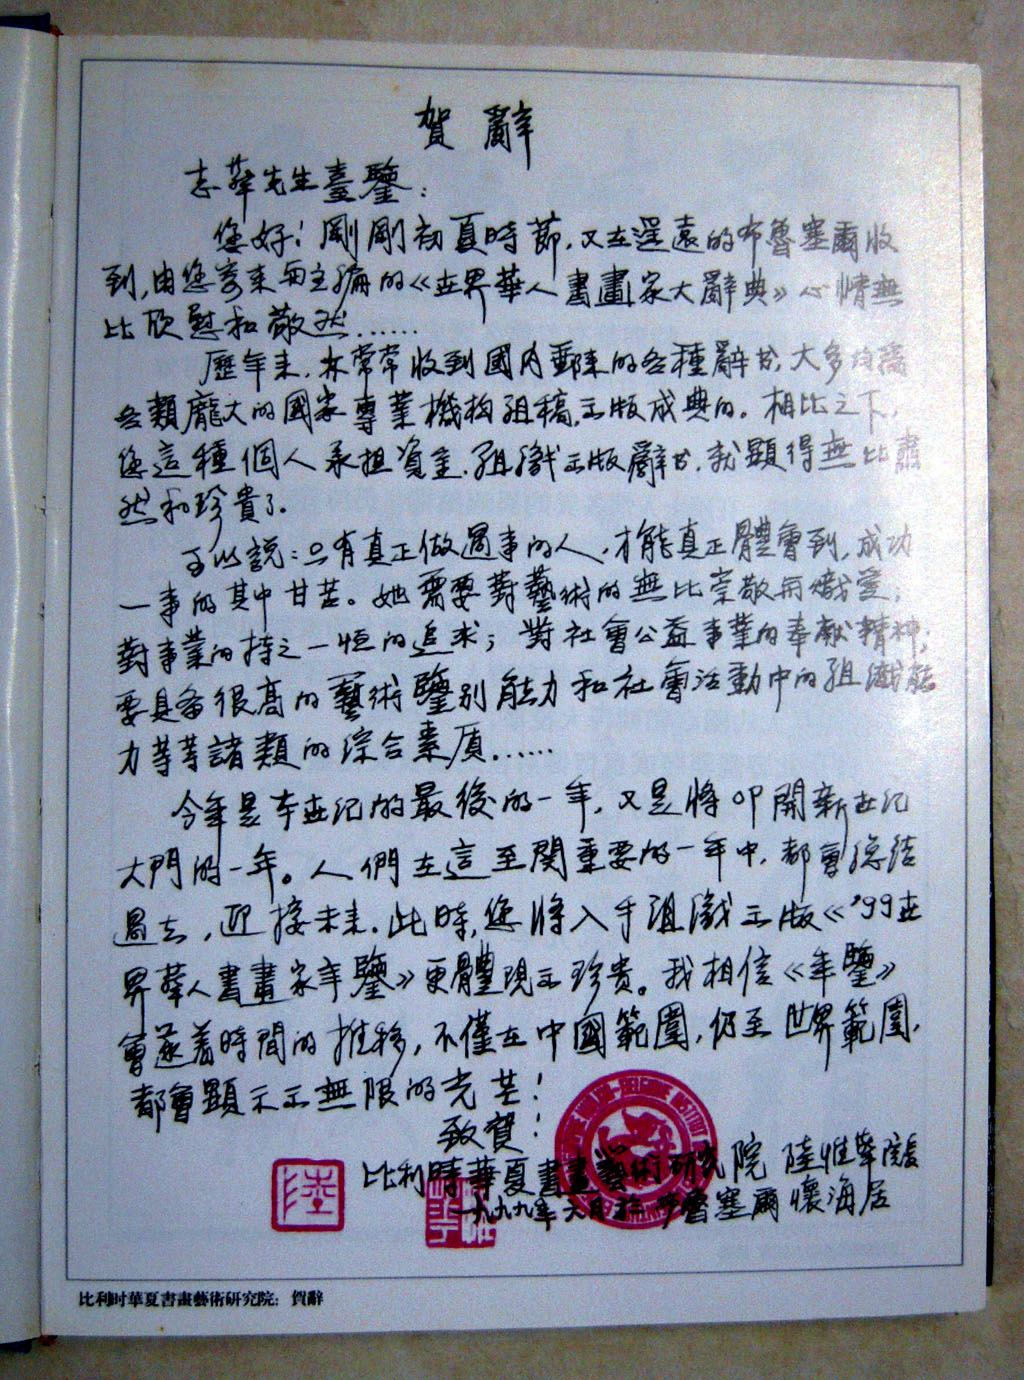 賀辭
志華先生臺鑒：
您好！剛剛初夏時節，又在遥遠的布魯塞爾收
到，由您寄来而主編的《世界華人書畫家大辭典》心情無
比欣慰和敬然……
歷年来，亦常常收到國内郵来的各種辭书，大多均為
各類龐大的國家專業機构组稿，出版成典的。相比之下，
您這種個人承担資金，组織出版辭书，就顯得無比肅
然和珍貴了。
可以説：只有真正做過事的人，才能真正體會到，成功
一事的其中甘苦。她需要對藝術的無比崇敬而熾愛；
對事業的持之一恒的追求；對社會公益事業的奉献精神；
要具备很高的藝術鑒别能力和社會活動中的组織能
力等等諸類的综合素质……
今年是本世纪的最後的一年，又是將叩開新世纪
大門的一年。人們在這至関重要的一年中，都會总结
過去，迎接未来。此時，您將入手组織出版《'99世
界華人書畫家年鑒》更體現出珍贵。我相信《年鑒》
會遂着時間的推移，不僅在中國範圍，仍至世界範圍，
都會顯示出無限的光芒！
致賀！
比利時華夏書畫藝術研究院 陸惟華院長
一九九九年六月 布魯塞爾懷海居
陸
比利时華夏書畫藝術研究院：賀辭